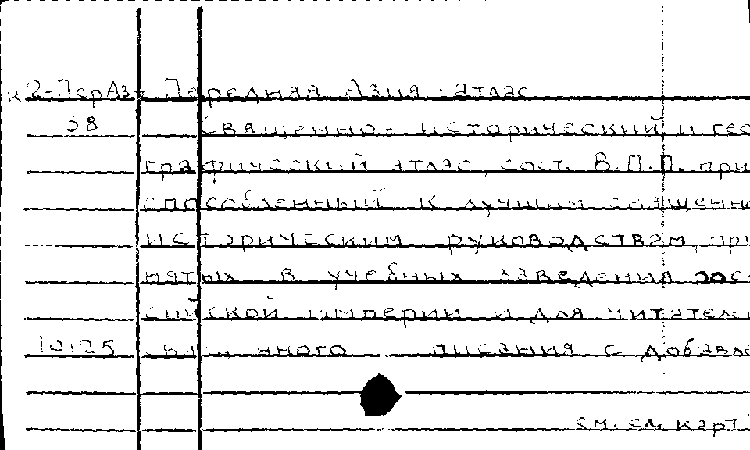 К2-ПерАз Передняя Азия - атлас
38 Священно-исторический и гео
графический атлас, сост. В.П.П. при
способленный к лучшим священно
историческим руководствам, при
нятых в учебных заведения Рос
сийской империи и для читателе
10125 много писания с добавле
см. сл. карт